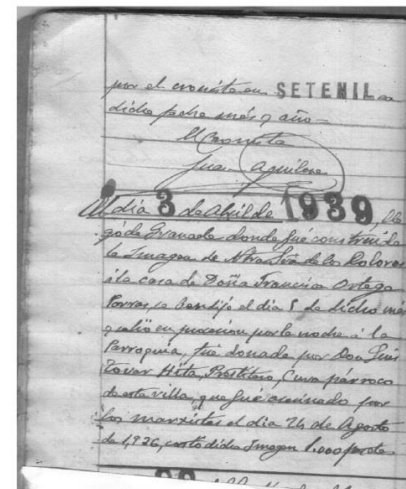 por el cronista en SETENIL a
dicha fecha mes y año —
El Cronista
Juan Aguilera
El día 3 de Abril de 1939, lle
gó de Granada donde fué construida
la Imagen de Ntra Sra de los Dolores
á la casa de Doña Francisca Ortega
Porras, se bendijo el dia 5 de dicho mes
y salió en procesion por la noche á la
Parroquia, fue donada por Don Luis
Tovar Hita, Presbítero, Cura párroco
de esta villa, que fué asesinado por
los marxistas el dia 24 de Agosto
de 1,936, costó dicha Imagen 1.000 pesetas